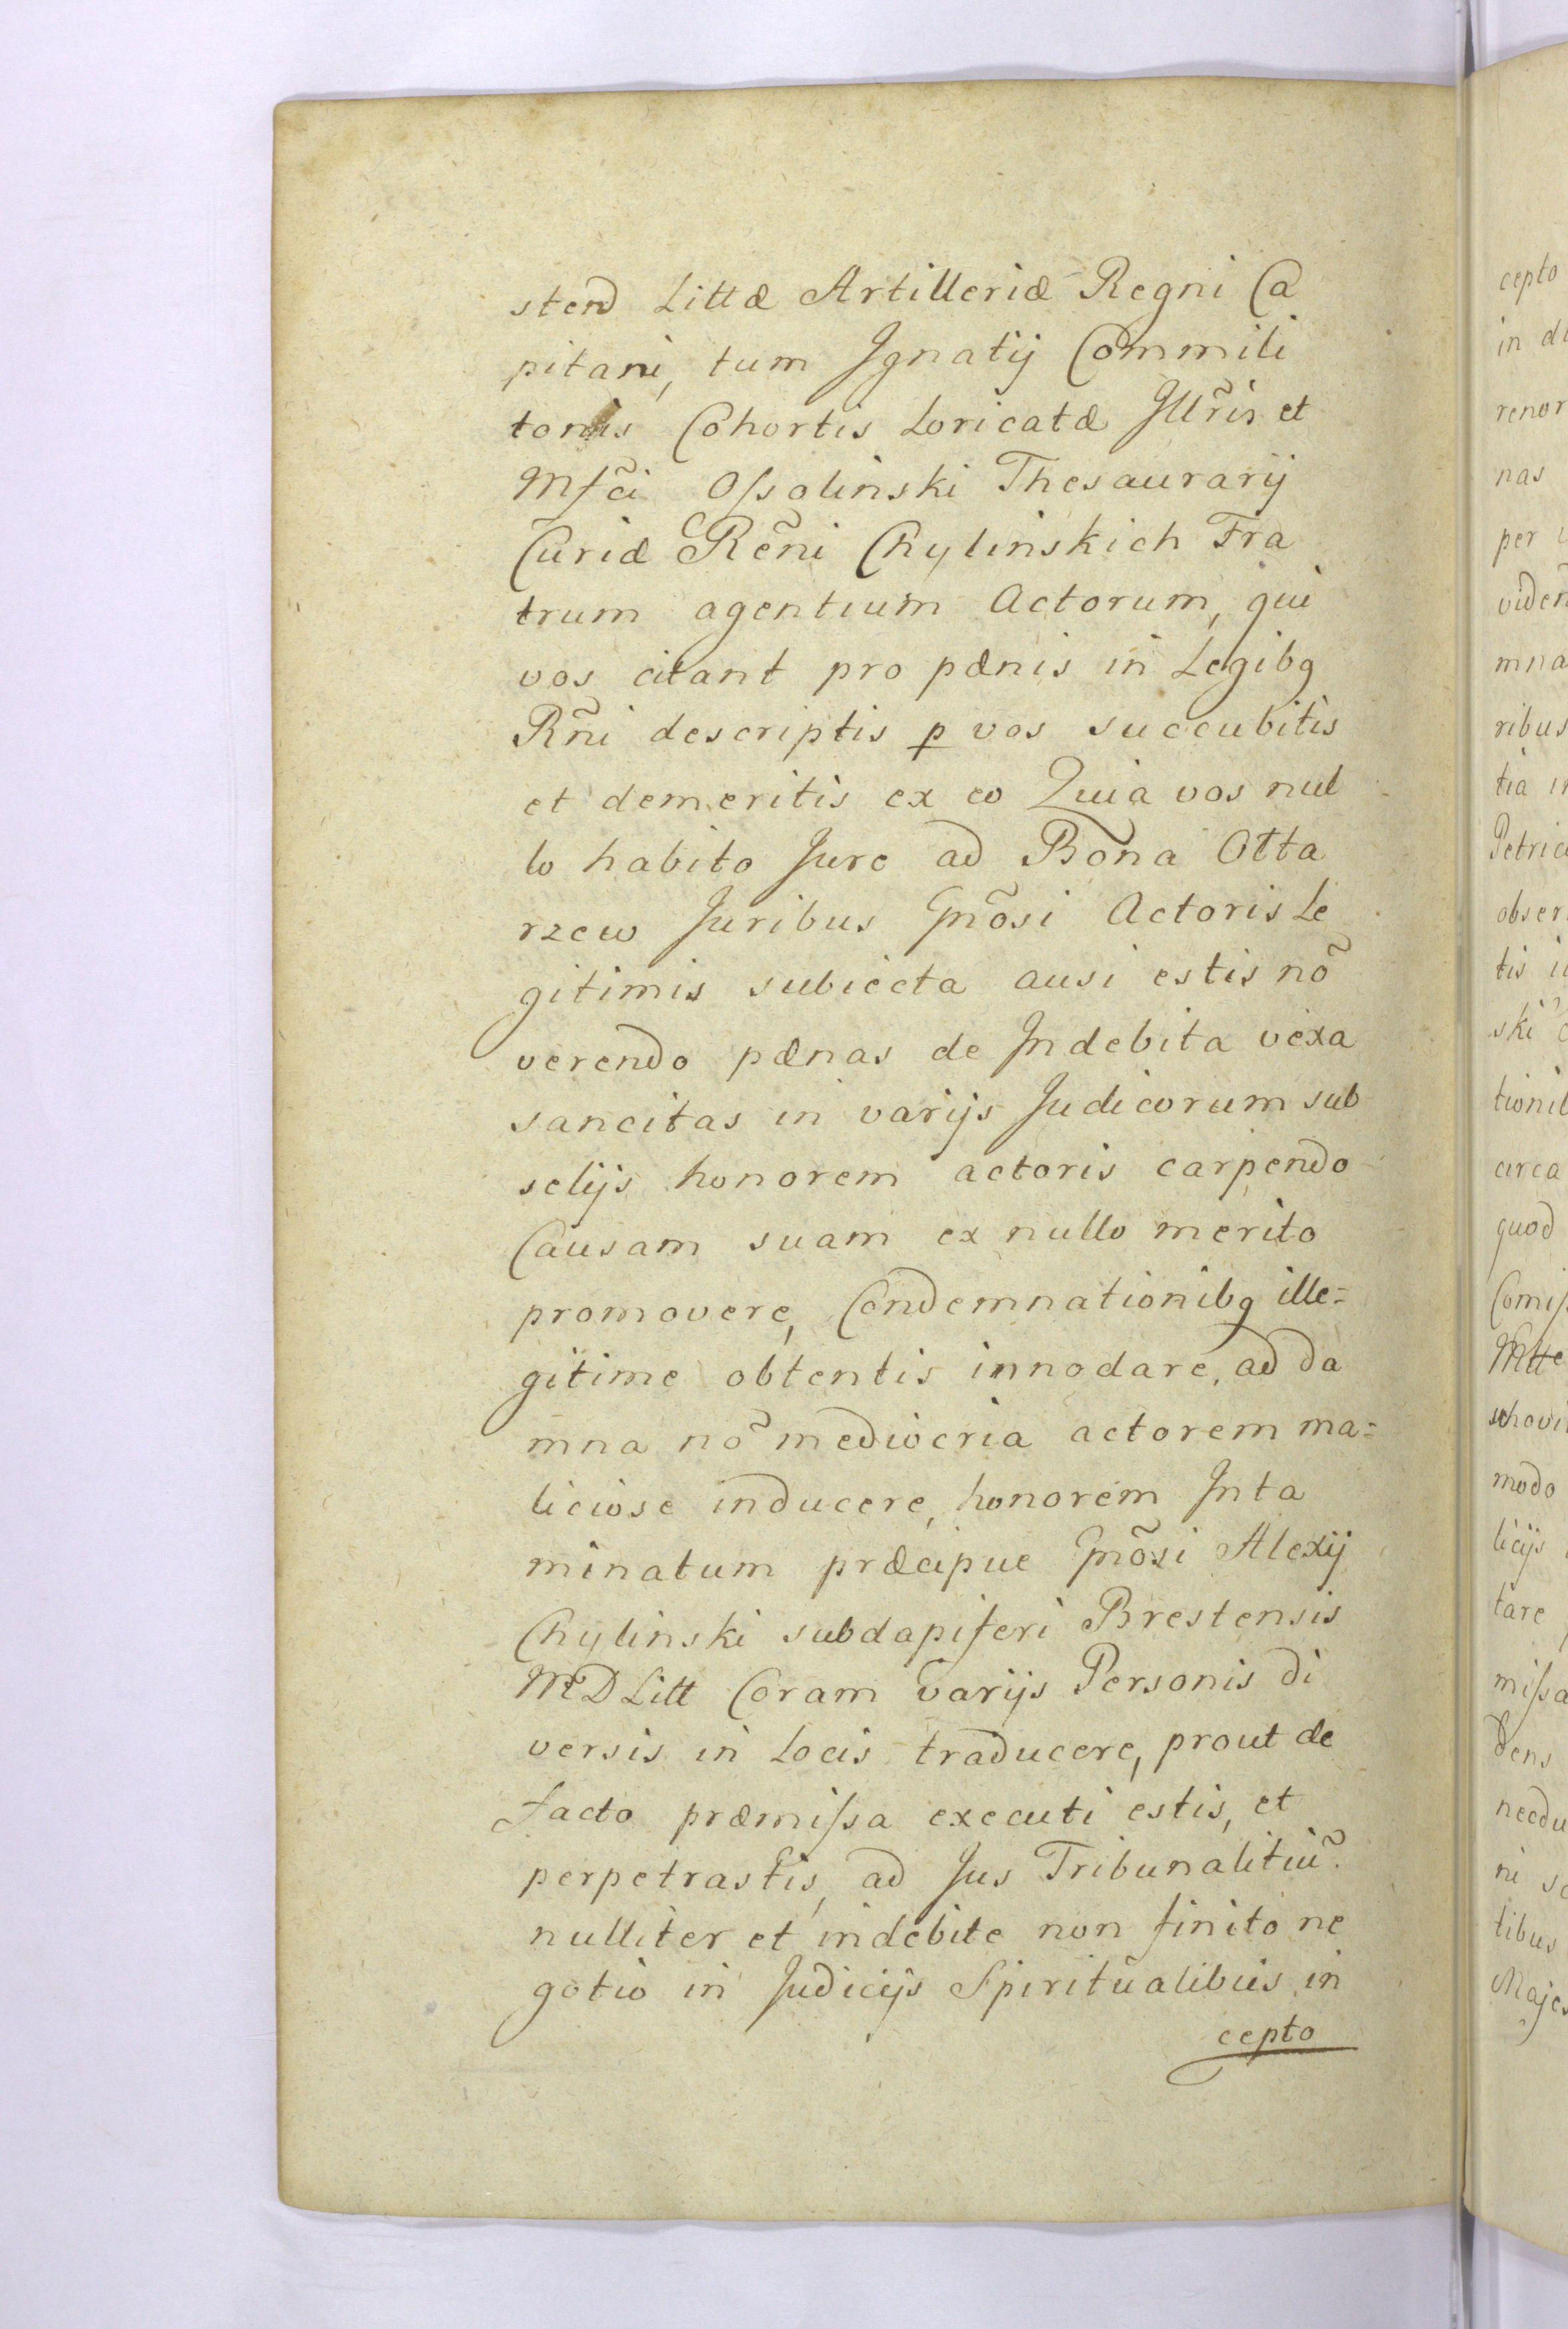 stend Littæ Artilleriæ Regni Ca
pitani, tum Ignatij Commili
tonis Cohortis Loricatæ Jllr̃is et
Mfc̃i Oſsolinski Thesaurarij
Curiæ Rẽni Chylinskich Fra
trum agentium Actorum, qui
vos citant pro pænis in Legibq
Rñi descriptis p vos succubitis
et demeritis ex eo Quia vos nul
lo habito Jure ad Bona Ołta
rzew Juribus Gnõsi Actoris Le
gitimis subiecta ausi estis nõ
verendo pænas de Indebita vexa
sancitas in varijs Judiciorum sub
selijs honorem actoris carpendo
Causam suam ex nullo merito
promovere, Condemnationibq ille=
gitime obtentis innodare, ad da
mna nõ mediocria actorem ma=
liciose inducere, honorem Inta
minatum præcipue Gnõsi Alexij
Chylinski subdapiferi Brestensis
MDLitt Coram varijs Personis di
versis in Locis traducere, prout de
facto præmiſsa executi estis, et
perpetrastis, ad Jus Tribunalitiũ.
nulliter et indebite non finito ne
gotio in Judicijs Spiritualibus in
cepto
cepto
nas
per
mna
ribus
circa
quod
modo
licijs
tare
tibus